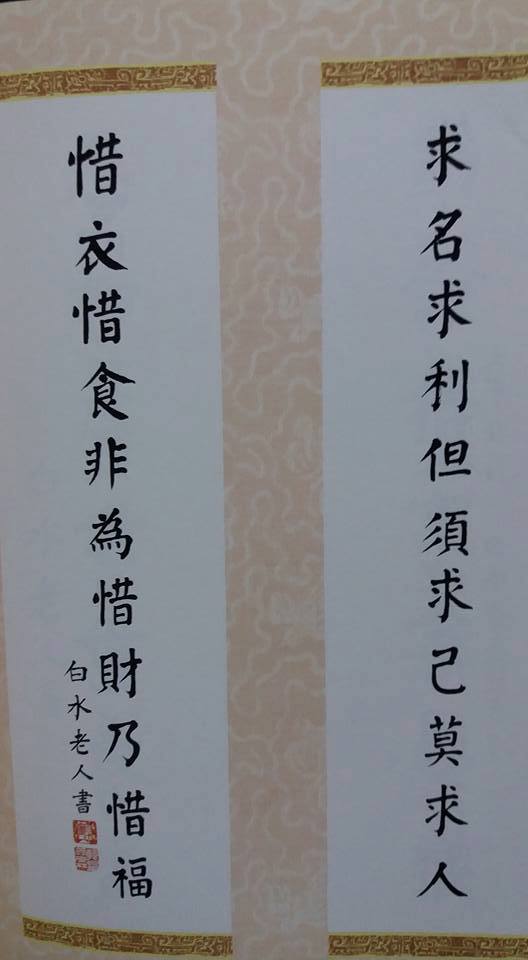 求名求利但須求己莫求人
惜衣惜食非為惜財乃惜福
白水老人書